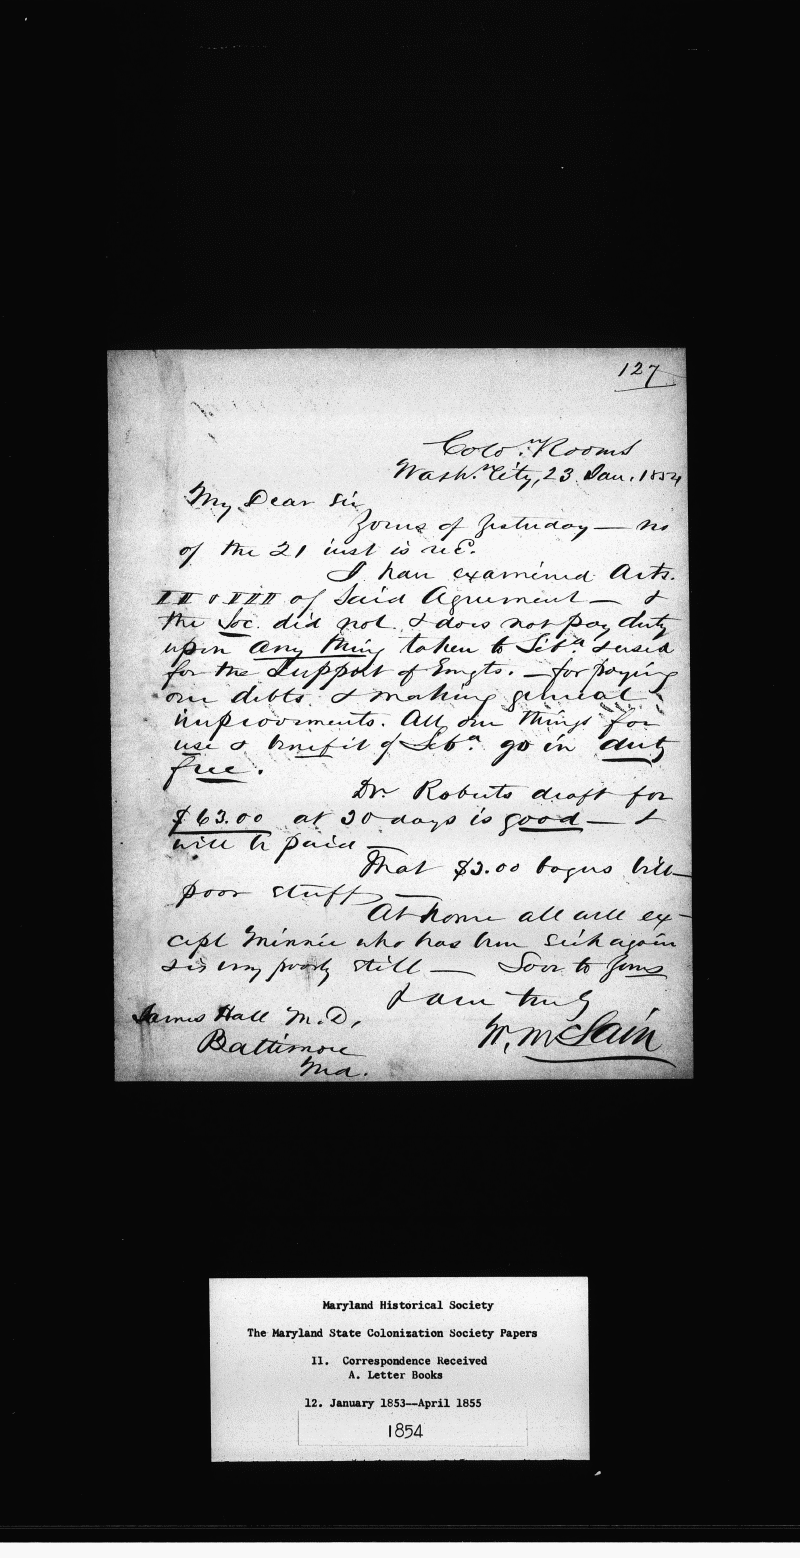 127
Colo.n Rooms
Wash.n City, 23 Jan. 1854
My Dear Sir
Yours of Yesterday — no
of the 21 inst is rec.
I have examined Arts.
of Said Agreement — &
the Soc. did not & does not pay duty
upon any thing taken to Lib.a & used
for the support of Emgts. — for paying
our debts & making general
improvements. All our things for
use & benefit of Lib.a go in duty
free.
Dr. Roberts draft for
$63.00 at 30 days is good — &
will be paid —
That $3.00 bogus bill —
poor stuff —
At home all well ex-
cept Minnie who has been sick again
& is very poorly still — Love to Yours
I am truly
W. McLain
James Hall M.D.,
Baltimore
Md.
Maryland Historical Society
The Maryland State Colonization Society Papers
II. Correspondence Received
A. Letter Books
12. January 1853--April 1855
1854